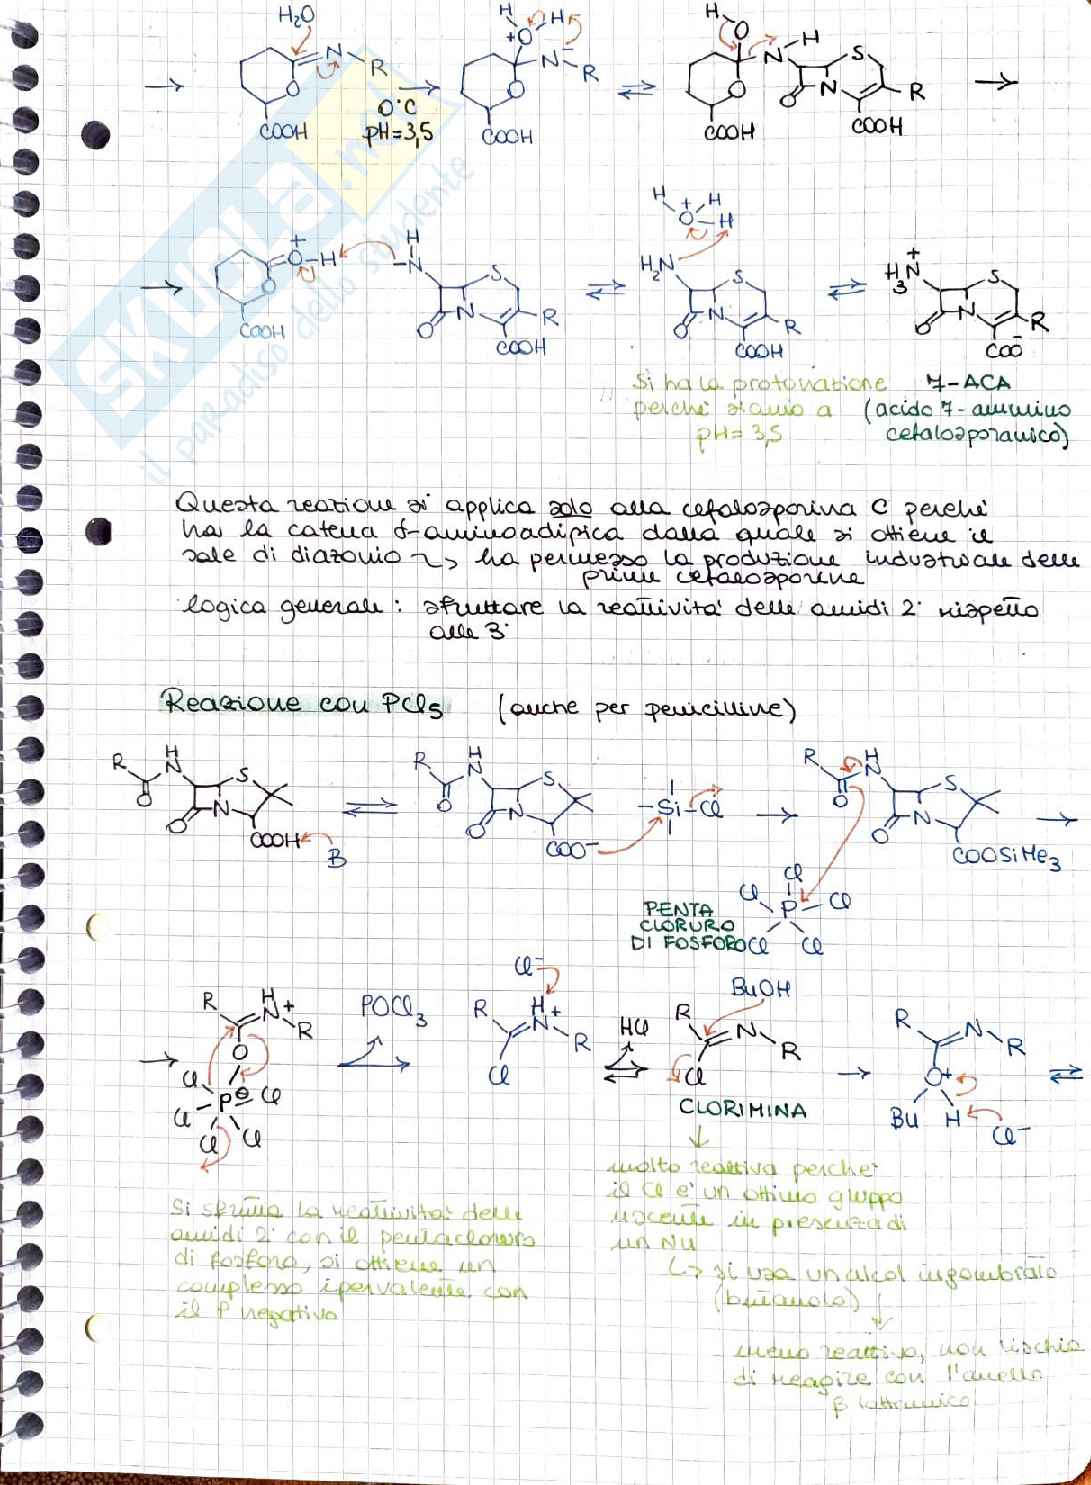 H₂O
N R
O
COOH
0°C
pH=3,5
H H
+O
N⁻ R
O
COOH
H
O
N-H
S
O
N
O
R
COOH
COOH
+
O-H
O
COOH
H
-N
S
N
O
R
COOH
H + H
O-H
H₂N
S
N
O
R
COOH
+
H₃N
S
N
O
R
COO⁻
Si ha la protonazione
perché siamo a
pH=3,5
7-ACA
(acido 7-ammino
cefalosporanico)
Questa reazione si applica solo alla cefalosporina C perché
ha la catena δ-aminoadipica dalla quale si ottiene il
sale di diazonio ~> ha permesso la produzione industriale delle
prime cefalosporine
logica generale: sfruttare la reattività delle amidi 2° rispetto
alle 3°
Reazione con PCl₅ (anche per penicilline)
R
H
N
O
S
N
O
COOH
B
R
H
N
O
S
N
O
COO⁻
-Si-Cl
R
H
N
O
S
N
O
COOSiMe₃
PENTA
CLORURO
DI FOSFORO
Cl
Cl P Cl
Cl Cl
R H
N+
R
O
Cl
P⊖ Cl
Cl
Cl Cl
POCl₃
Cl⁻
R H
N+
R
Cl
HCl
BuOH
R
N
R
Cl
CLORIMINA
R
N
R
O+
Bu H
Cl⁻
Si sfrutta la reattività delle
amidi 2° con il pentacloruro
di fosforo, si ottiene un
complesso ipervalente con
il P negativo
molto reattiva perché
il Cl è un ottimo gruppo
uscente in presenza di
un Nu
↳ si usa un alcol ingombrato
(butanolo)
meno reattivo, non rischia
di reagire con l'anello
β lattamico
SKUOLA.net
il paradiso dello studente